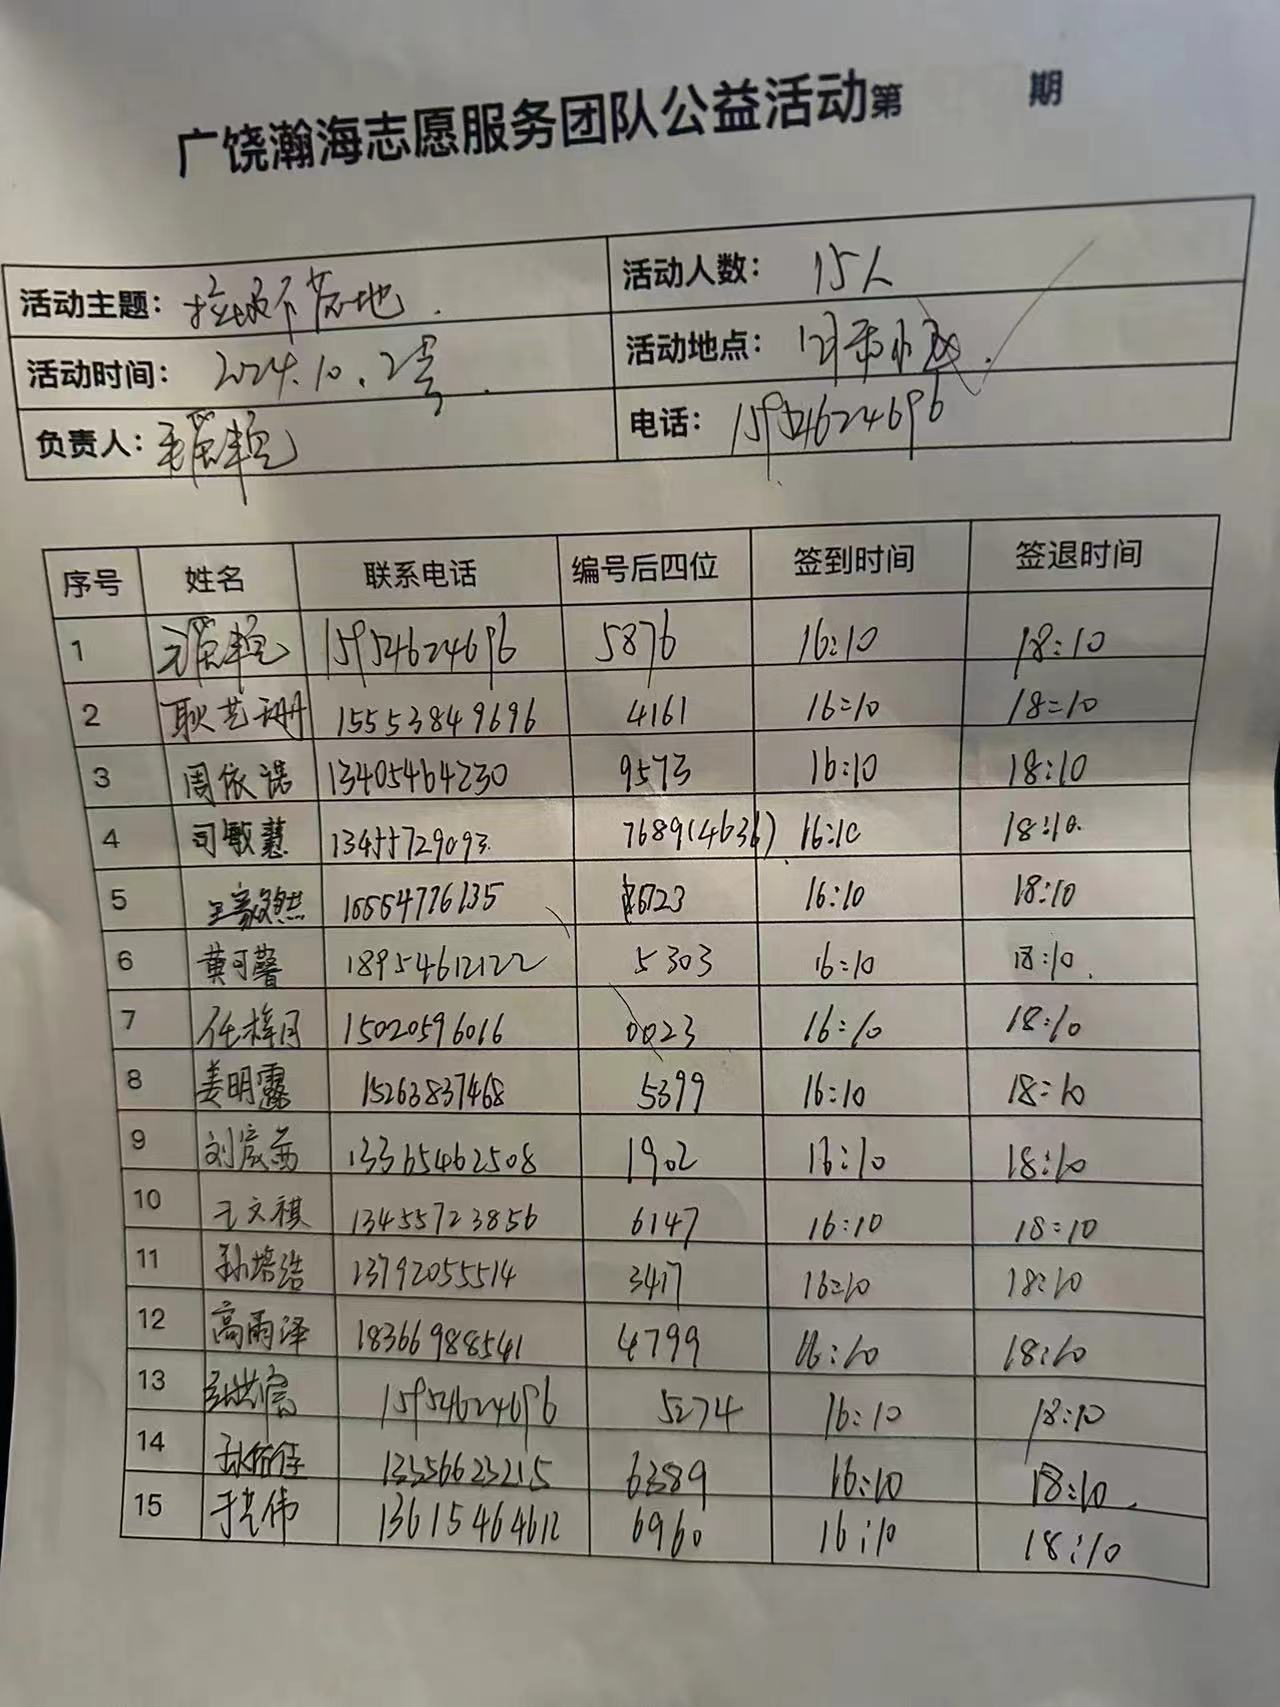 广饶瀚海志愿服务团队公益活动第 期
活动主题: 垃圾不落地. 活动人数: 15人
活动时间: 2024.10.2号. 活动地点: 小区.
负责人: 电话: 15954624696
序号 姓名 联系电话 编号后四位 签到时间 签退时间
1 15954624696 5876 16:10 18:10
2 耿艺珊 15553849696 4161 16:10 18:10
3 周依诺 13405464230 9573 16:10 18:10
4 司敏慧 13455729093. 7689(4636) 16:10 18:10.
5 王毅然 15554776135 6723 16:10 18:10
6 黄可馨 18954612122 5303 16:10 18:10.
7 任梓月 15020596016 0023 16:10 18:10
8 姜明露 15263837468 5399 16:10 18:10
9 刘宸茜 13365462508 1902 16:10 18:10
10 王文祺 13455723856 6147 16:10 18:10
11 孙培浩 13792055514 3417 16:10 18:10
12 高雨泽 18366988541 4799 16:10 18:10
13 15954624696 5274 16:10 18:10
14 13356623215 6389 16:10 18:10.
15 于光伟 13615464612 6960 16:10 18:10